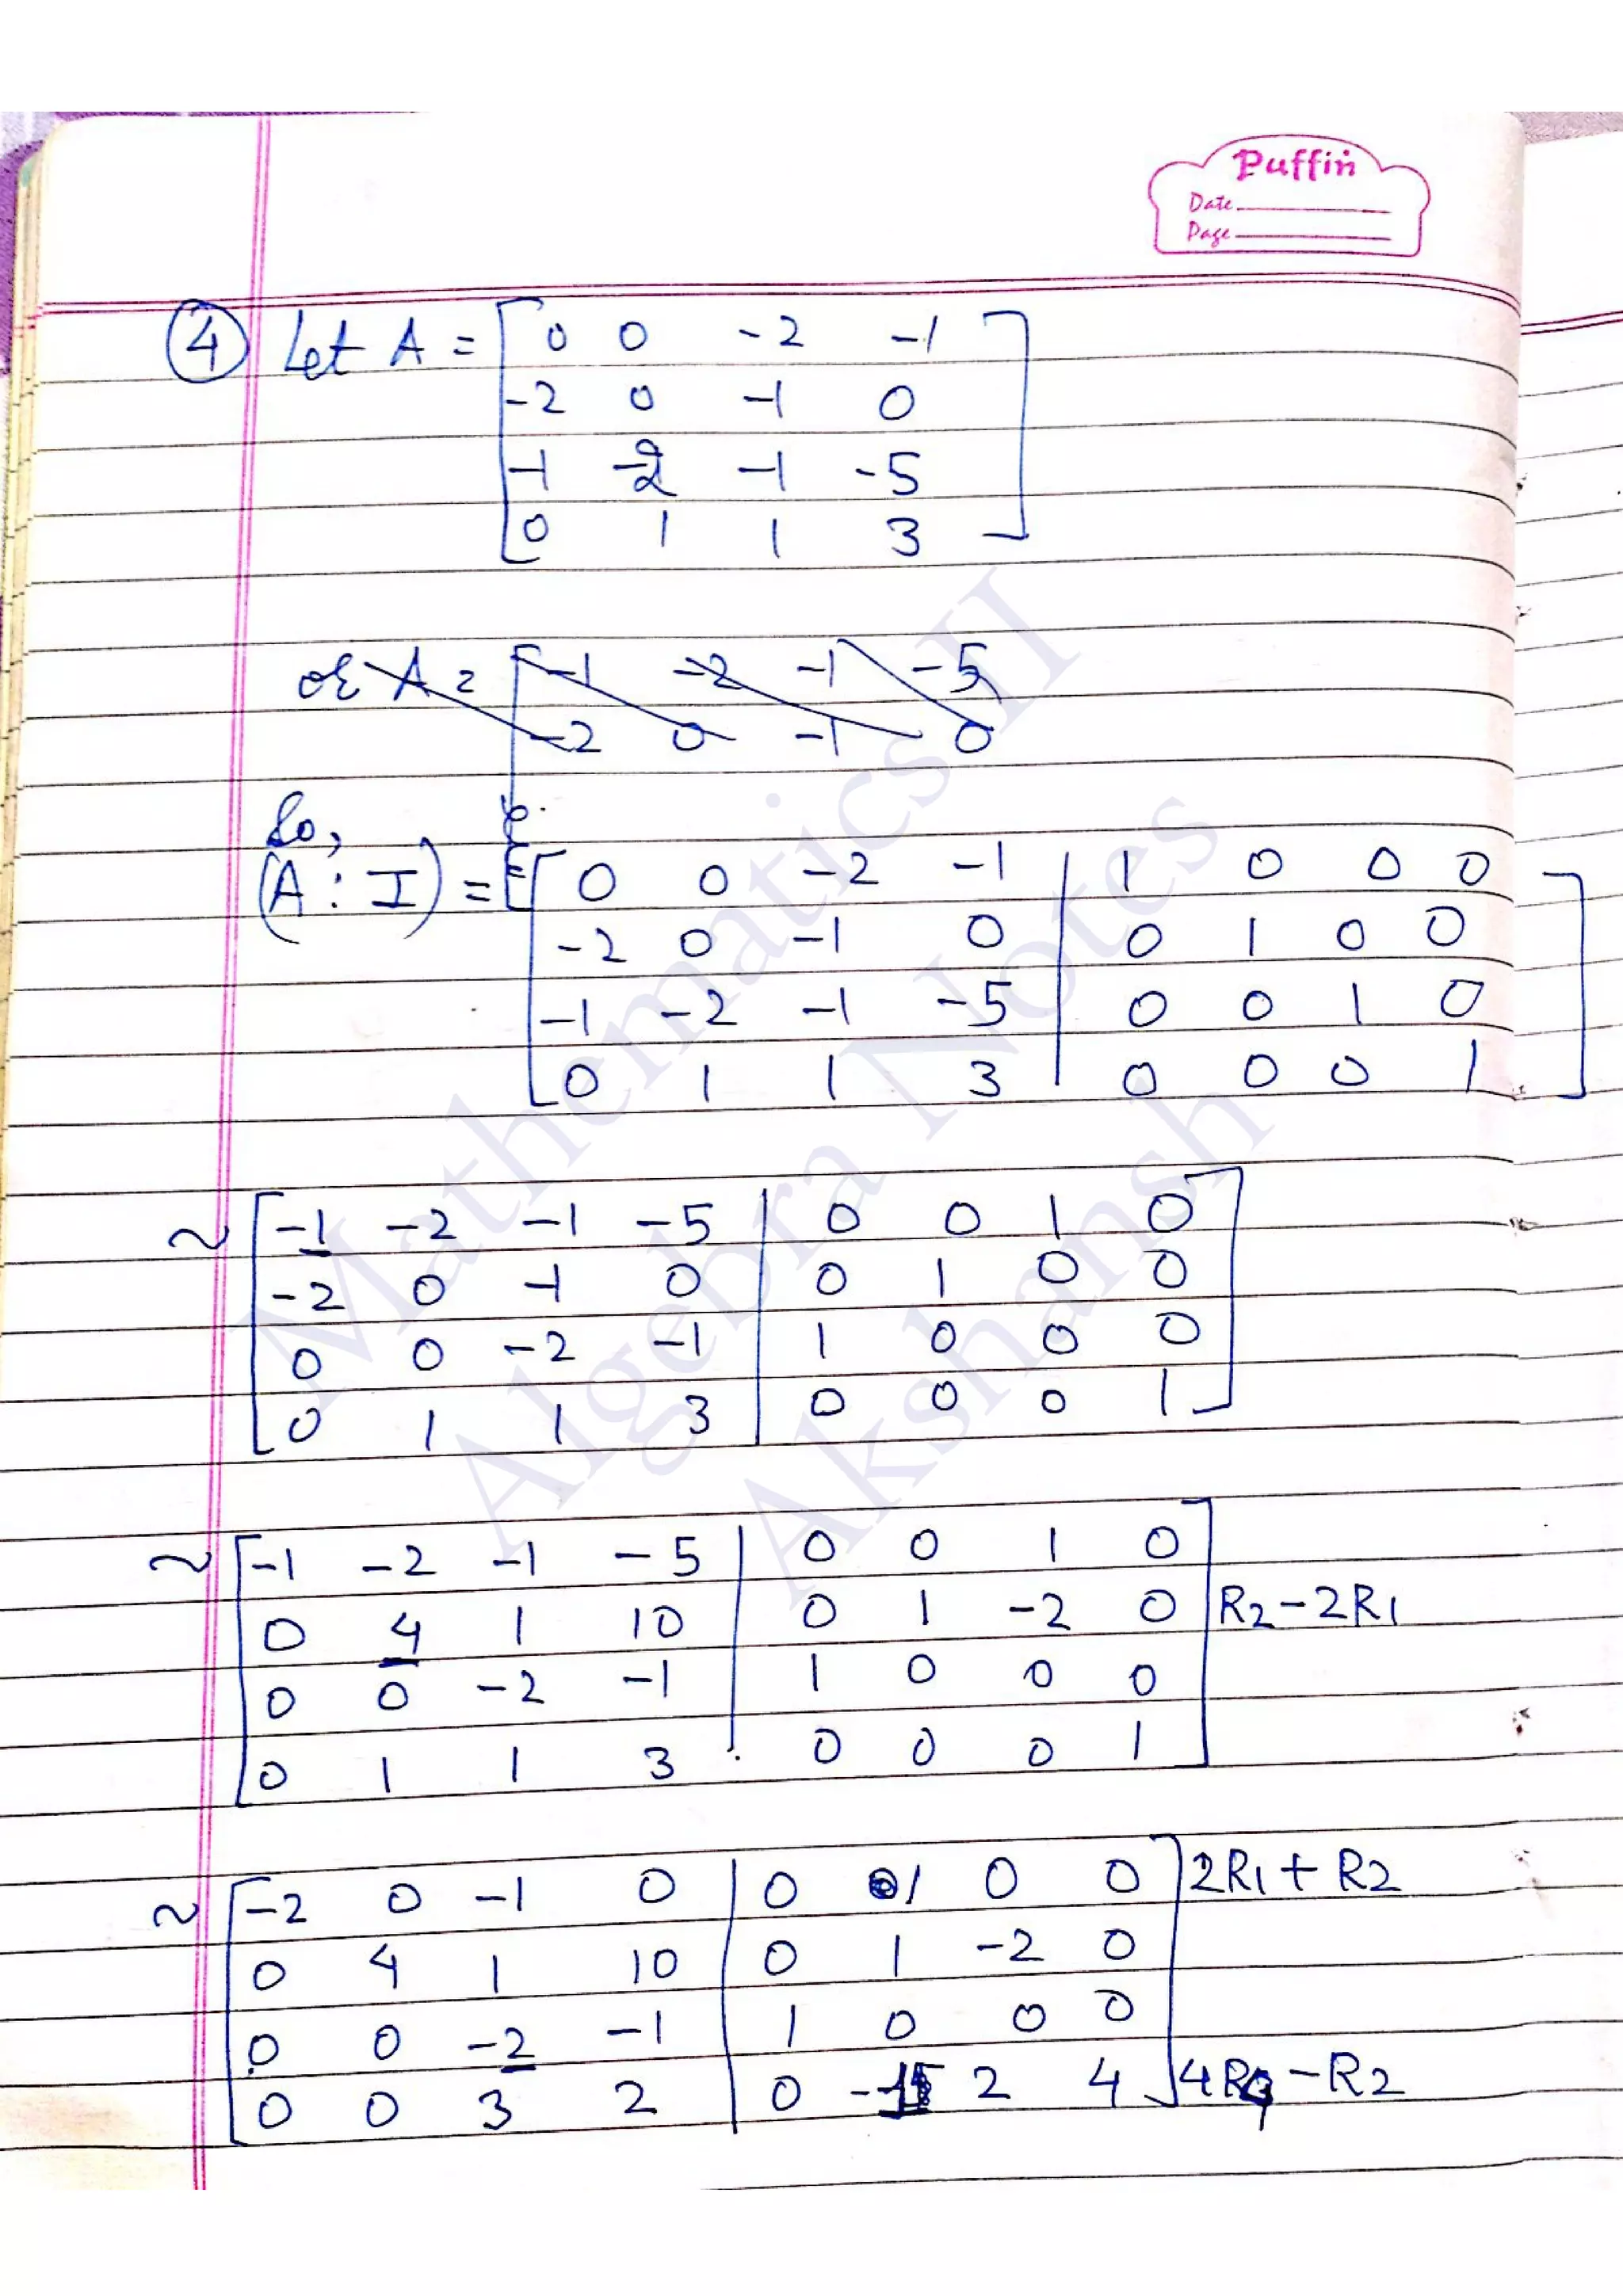 Puffin
Date
Page
④ Let A = [ 0 0 -2 -1
-2 0 -1 0
-1 -2 -1 -5
0 1 1 3 ]
or A = [ -1 -2 -1 -5
-2 0 -1 0
So,
(A : I) = [ 0 0 -2 -1 | 1 0 0 0
-2 0 -1 0 | 0 1 0 0
-1 -2 -1 -5 | 0 0 1 0
0 1 1 3 | 0 0 0 1 ]
~ [ -1 -2 -1 -5 | 0 0 1 0
-2 0 -1 0 | 0 1 0 0
0 0 -2 -1 | 1 0 0 0
0 1 1 3 | 0 0 0 1 ]
~ [ -1 -2 -1 -5 | 0 0 1 0
0 4 1 10 | 0 1 -2 0 R2-2R1
0 0 -2 -1 | 1 0 0 0
0 1 1 3 | 0 0 0 1 ]
~ [ -2 0 -1 0 | 0 1 0 0 ] 2R1 + R2
0 4 1 10 | 0 1 -2 0
0 0 -2 -1 | 1 0 0 0
0 0 3 2 | 0 -1 2 4 ] 4R4 - R2
Mathematics II
Algebra Notes
Akshansh